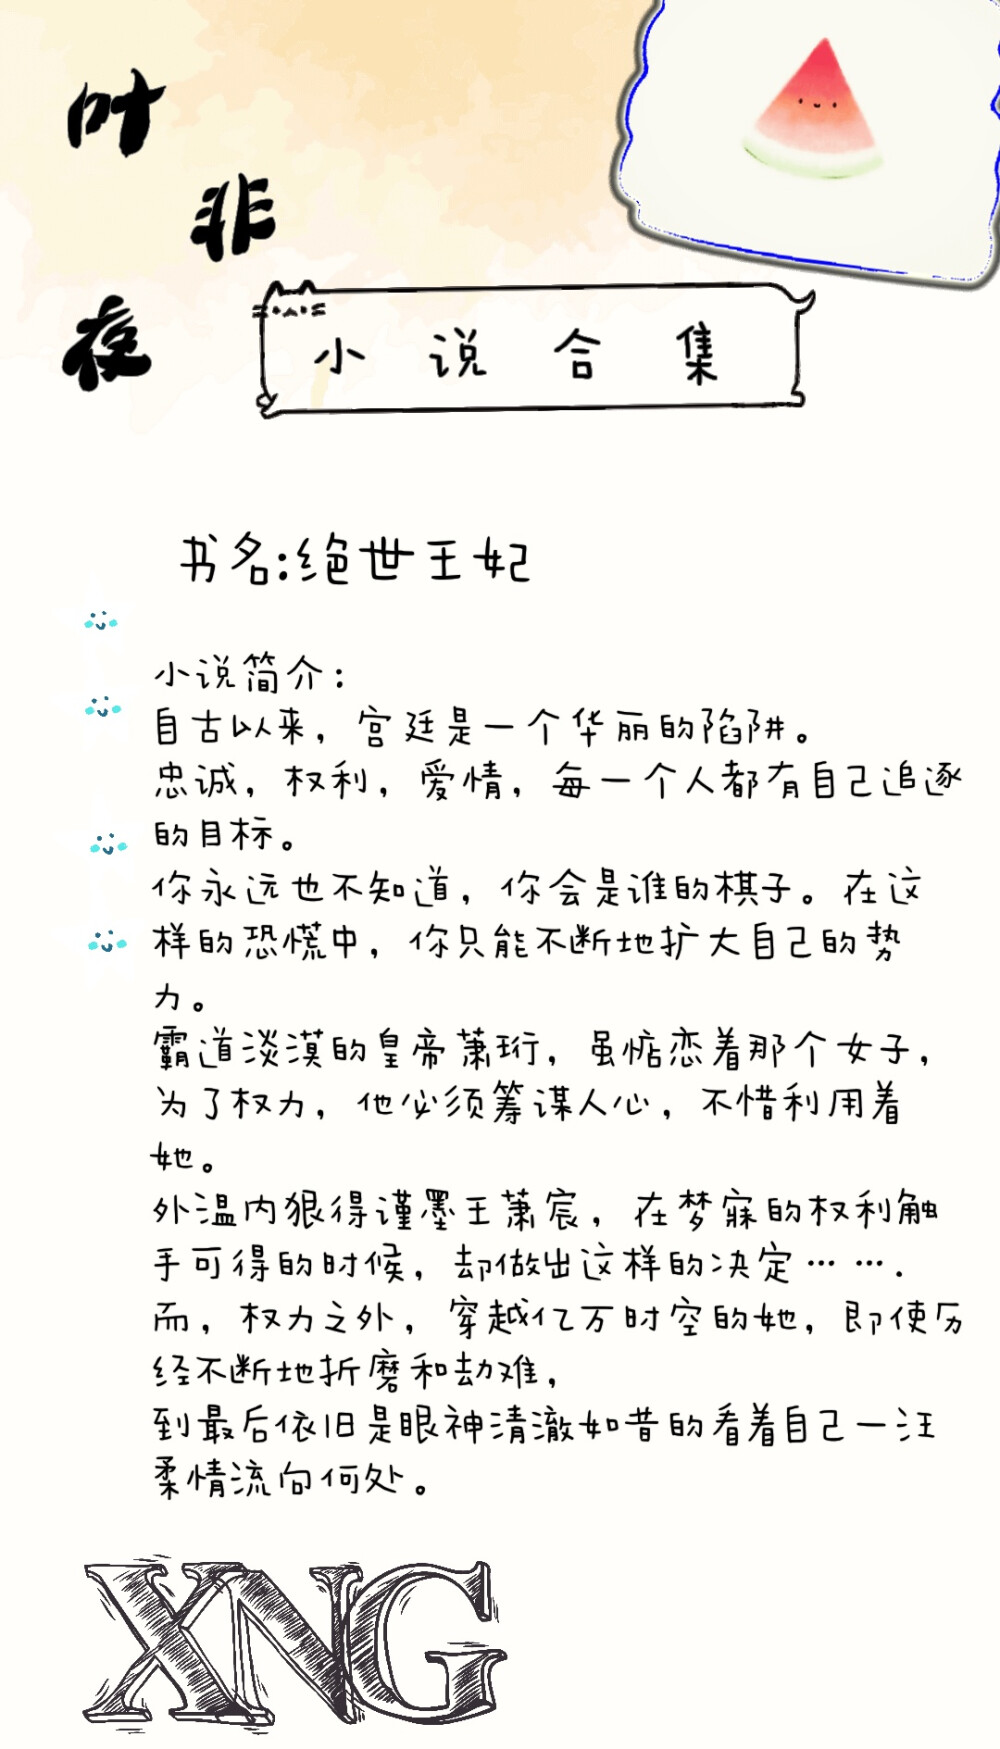 叶
非
夜
小说合集
书名:绝世王妃
小说简介:
自古以来，宫廷是一个华丽的陷阱。
忠诚，权利，爱情，每一个人都有自己追逐
的目标。
你永远也不知道，你会是谁的棋子。在这
样的恐慌中，你只能不断地扩大自己的势
力。
霸道淡漠的皇帝萧珩，虽惦恋着那个女子，
为了权力，他必须筹谋人心，不惜利用着
她。
外温内狠得谨墨王萧宸，在梦寐的权利触
手可得的时候，却做出这样的决定… ….
而，权力之外，穿越亿万时空的她，即使历
经不断地折磨和劫难，
到最后依旧是眼神清澈如昔的看着自己一汪
柔情流向何处。
XNG